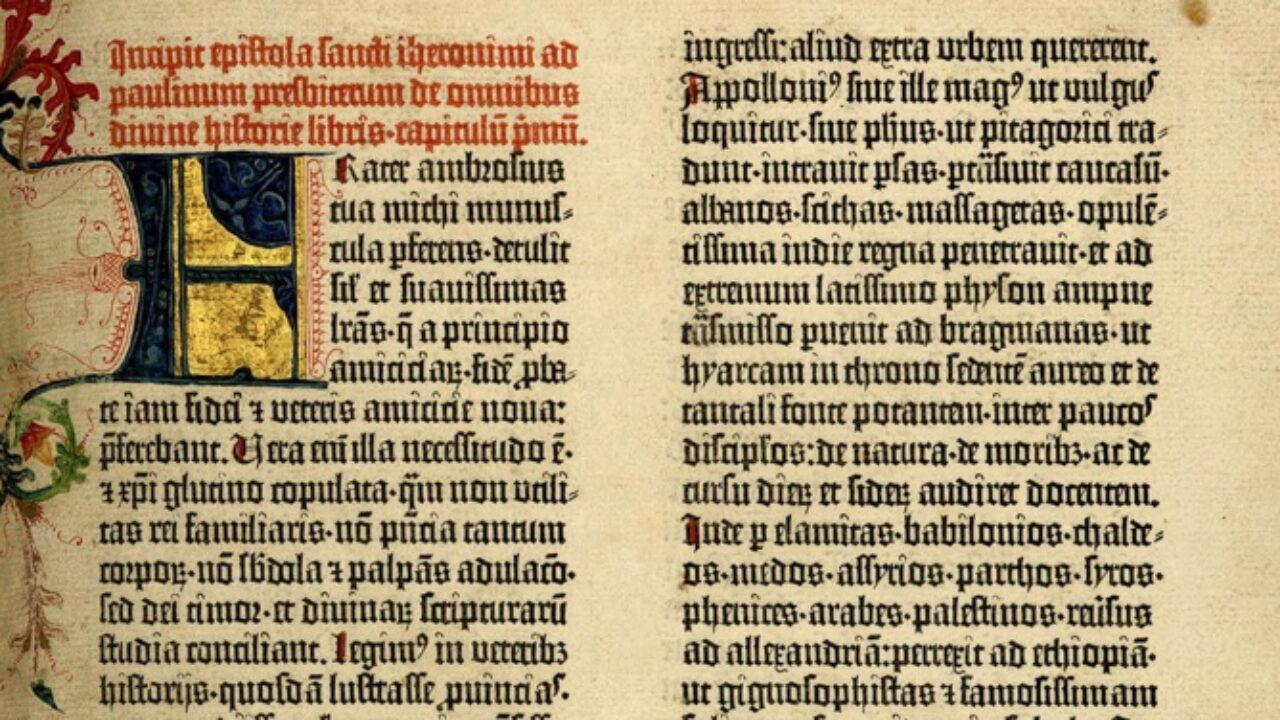 Incipit epistola sancti iheronimi ad
paulinum presbiterum de omnibus
divine historie libris·capitulū p̄mū.
Frater ambrosius
tua michi munus-
cula pferens·detulit
sił et suavissimas
lrās·q̄ a principio
amiciciaꝝ·fidē ꝓba-
te iam fidei ⁊ veteris amicicie nova:
p̄ferebant. Vera eni illa necessitudo ē·
⁊ xp̄i glutino copulata·q̄m non utili-
tas rei familiaris·nō p̄ncia tantum
corpoꝝ·nō sbdola ⁊ palpās adulacō·
sed dei timor·et divinaꝝ scripturarū
studia conciliant. Legimꝰ in veteribꝫ
historijs·quosdā lustrasse ꝓvincias.
ingressi: aliud extra urbem quererent.
Appolloniꝰ sive ille magꝰ ut vulgus
loquitur·sive phus·ut pitagorici tra-
dunt·intravit psas·ptrāsivit caucasū·
albanos·scithas·massagetas·opulē-
tissima indie regna penetravit·et ad
extremum latissimo physon ampne
trāsmisso pvenit ad bragmanas·ut
hyarcam in throno sedentē aureo et de
tantali fonte potantem·inter paucos
discipłos: de natura·de moribꝫ·ac de
cursu dieꝝ et sideꝝ audiret docentem.
Inde p elamitas·babilonios·chalde-
os·medos·assyrios·parthos·syros·
phenices·arabes·palestinos·reūsus
ad allexandriā: perrexit ad ethiopiā·
ut gignosophistas ⁊ famosissimam